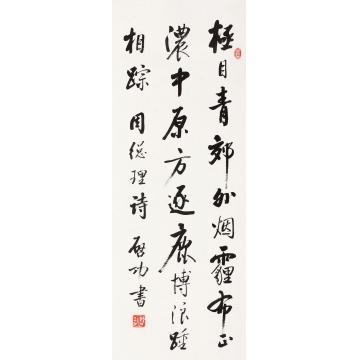 極目青郊外烟霾布正
濃中原方逐鹿博浪踵
相踪 周總理詩 啟功書